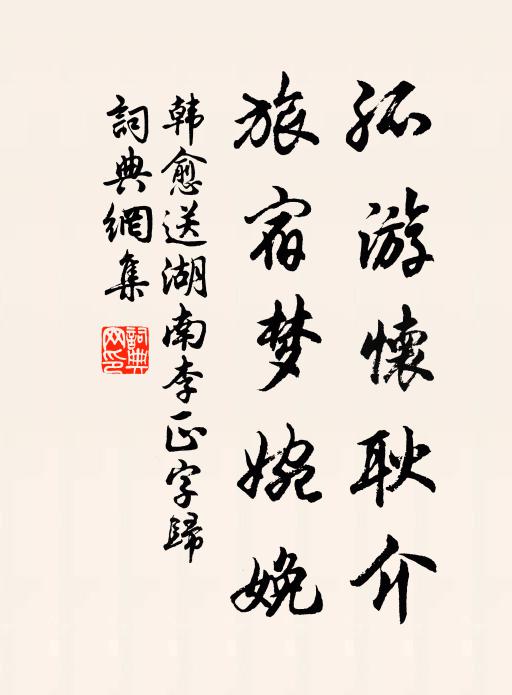 孤游懷耿介
旅宿梦婉娩
韩愈送湖南李正字歸
詞典網集
詞典网印